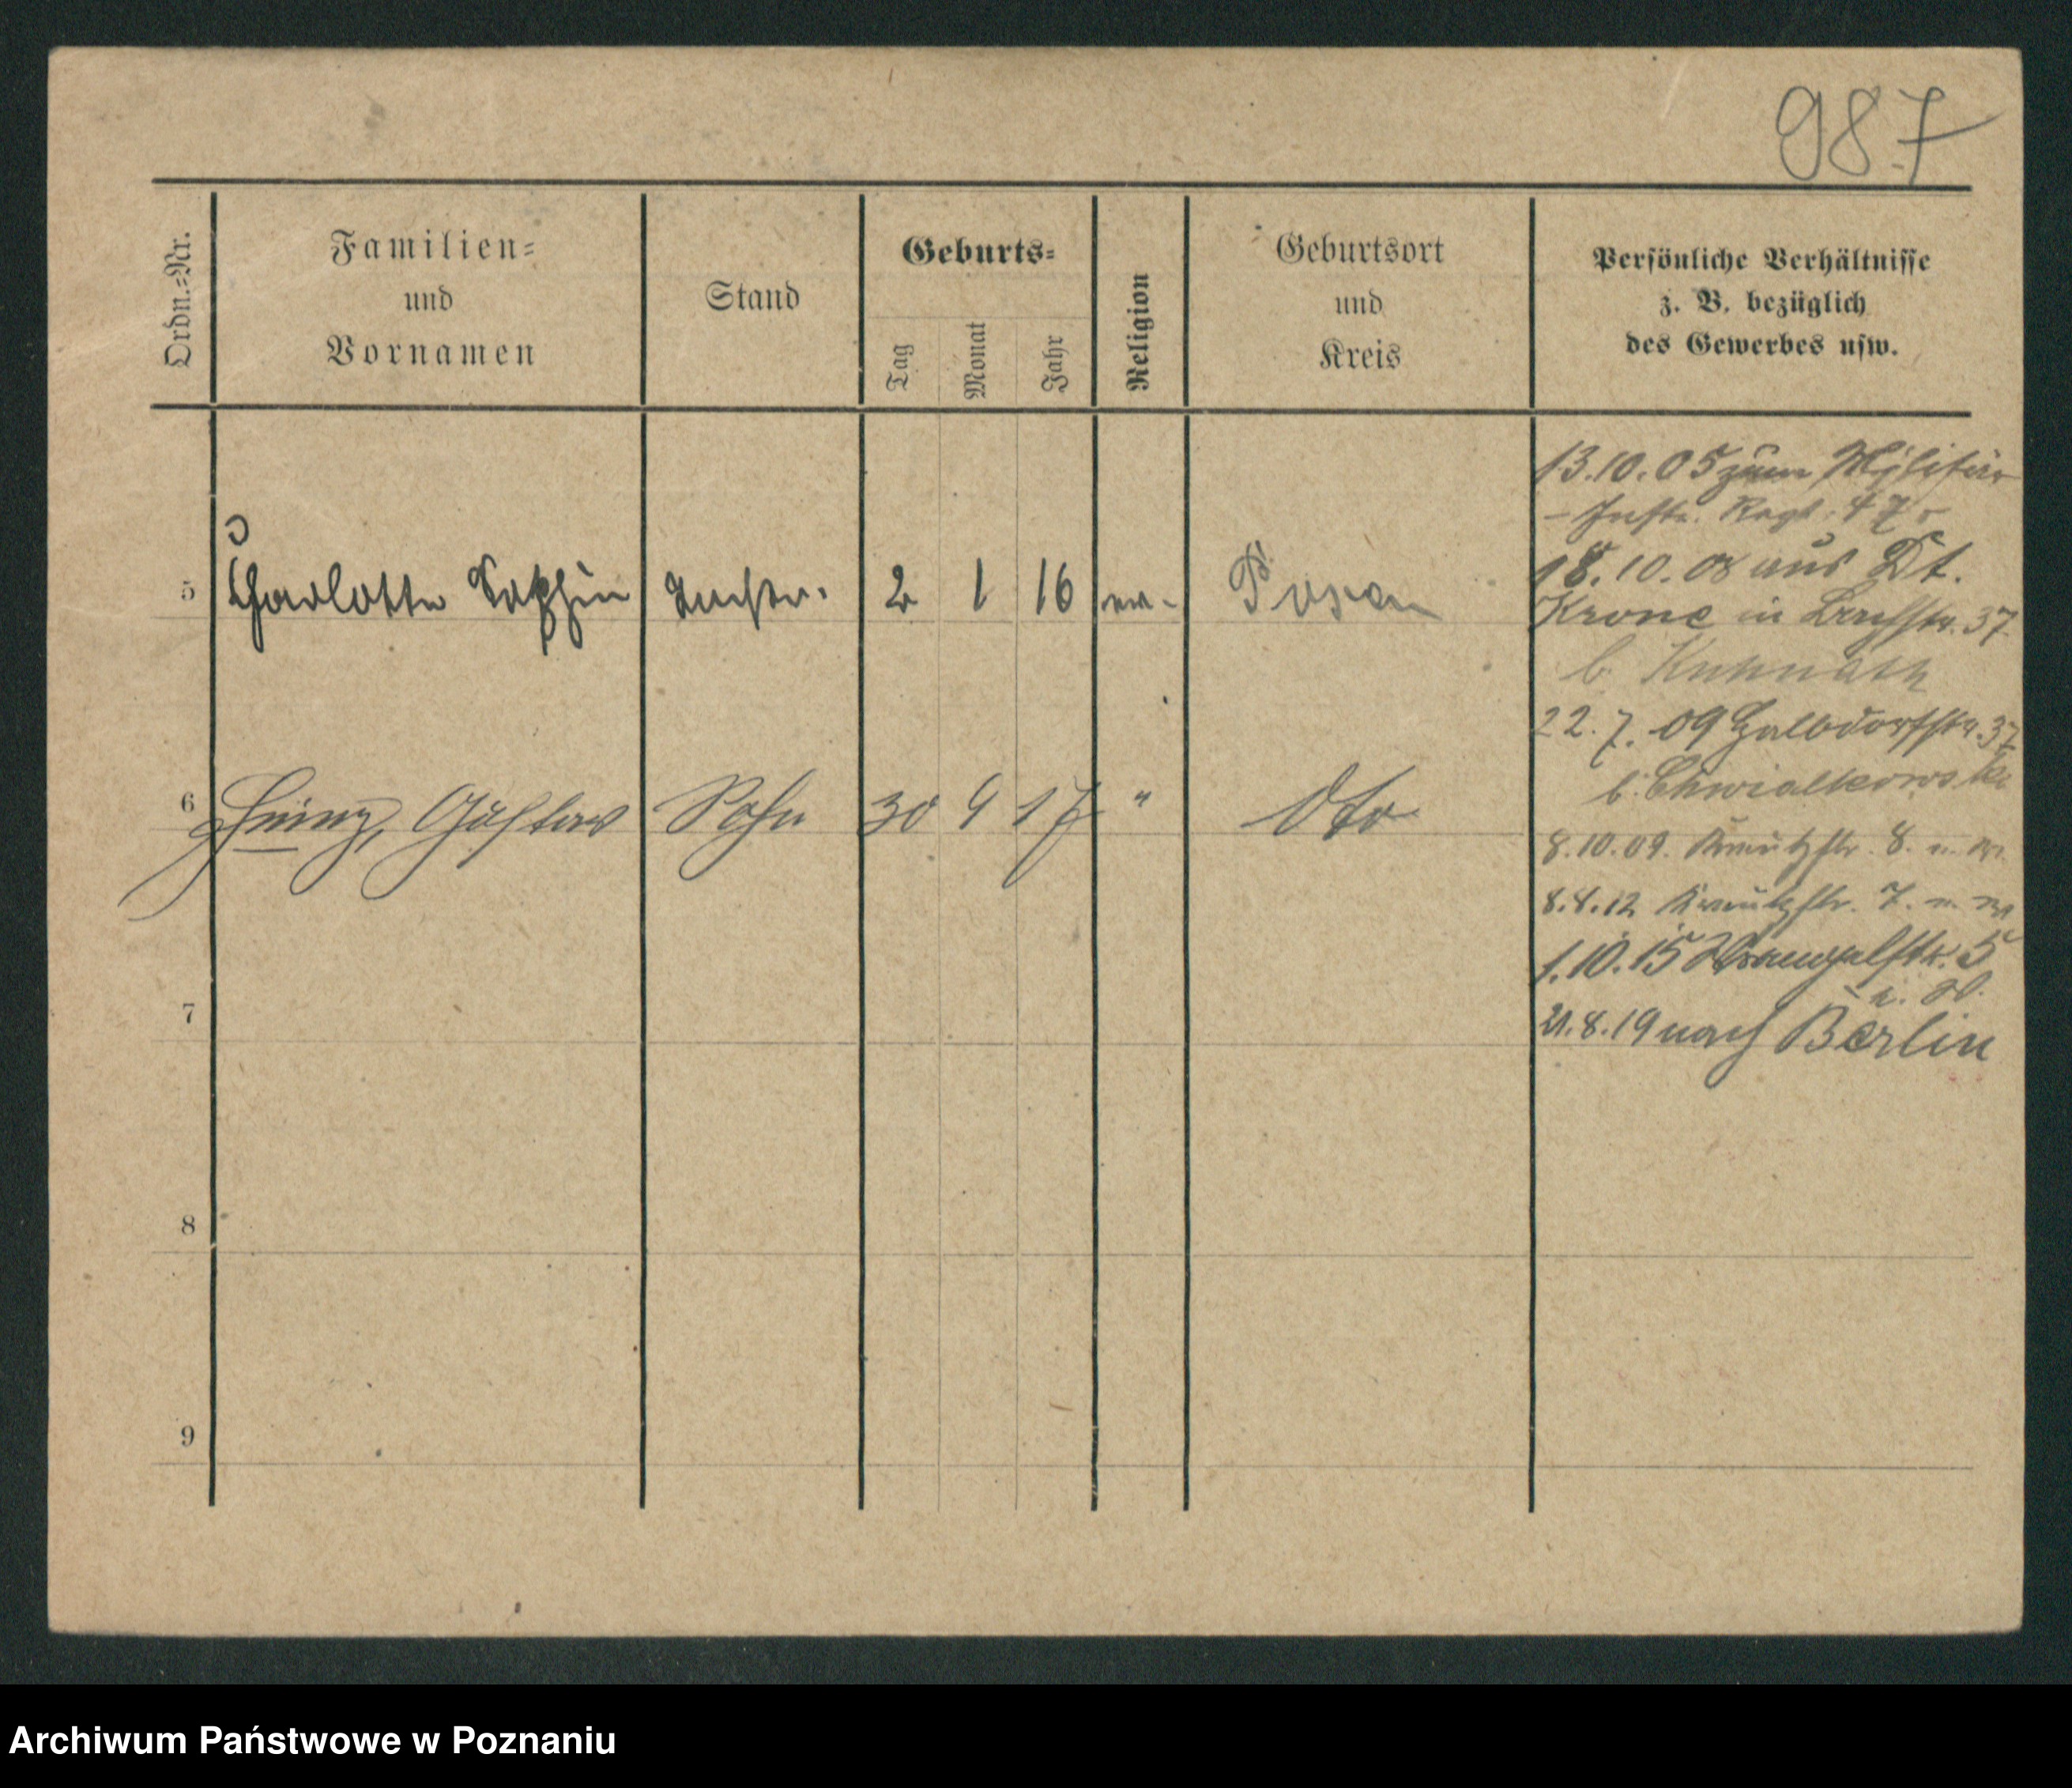 987
Ordn.=Nr.
Familien=
und
Vornamen
Stand
Geburts=
Tag
Monat
Jahr
Religion
Geburtsort
und
Kreis
Persönliche Verhältnisse
z. B. bezüglich
des Gewerbes usw.
5 Charlotte Sophie Tochter. 2 1 16 ev. Posen
6 Heinz, Gustav Sohn 30 9 17 " Dto
7
8
9
13.10.05 zum Militär
- Inftr. Regt. 47
18.10.08 aus Dt.
Krone in Bachstr. 37
b.
22.7.09 Halbdorfstr. 37
b. Chwialkowski
8.10.09. Kreutzstr. 8.
8.4.12 Kreutzstr. 7.
1.10.15 Wrangelstr. 5
21.8.19 nach Berlin
Archiwum Państwowe w Poznaniu